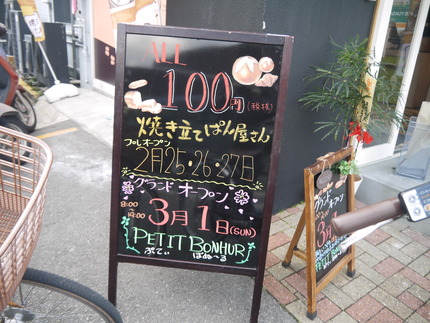 ALL
100円(税抜)
焼き立てぱん屋さん
プレオープン
2月25・26・27日
グランドオープン
8:00
3月1日(SUN)
PETIT BONHUR
ぷてぃ ぼぬーる
グランド
オープン
3月1